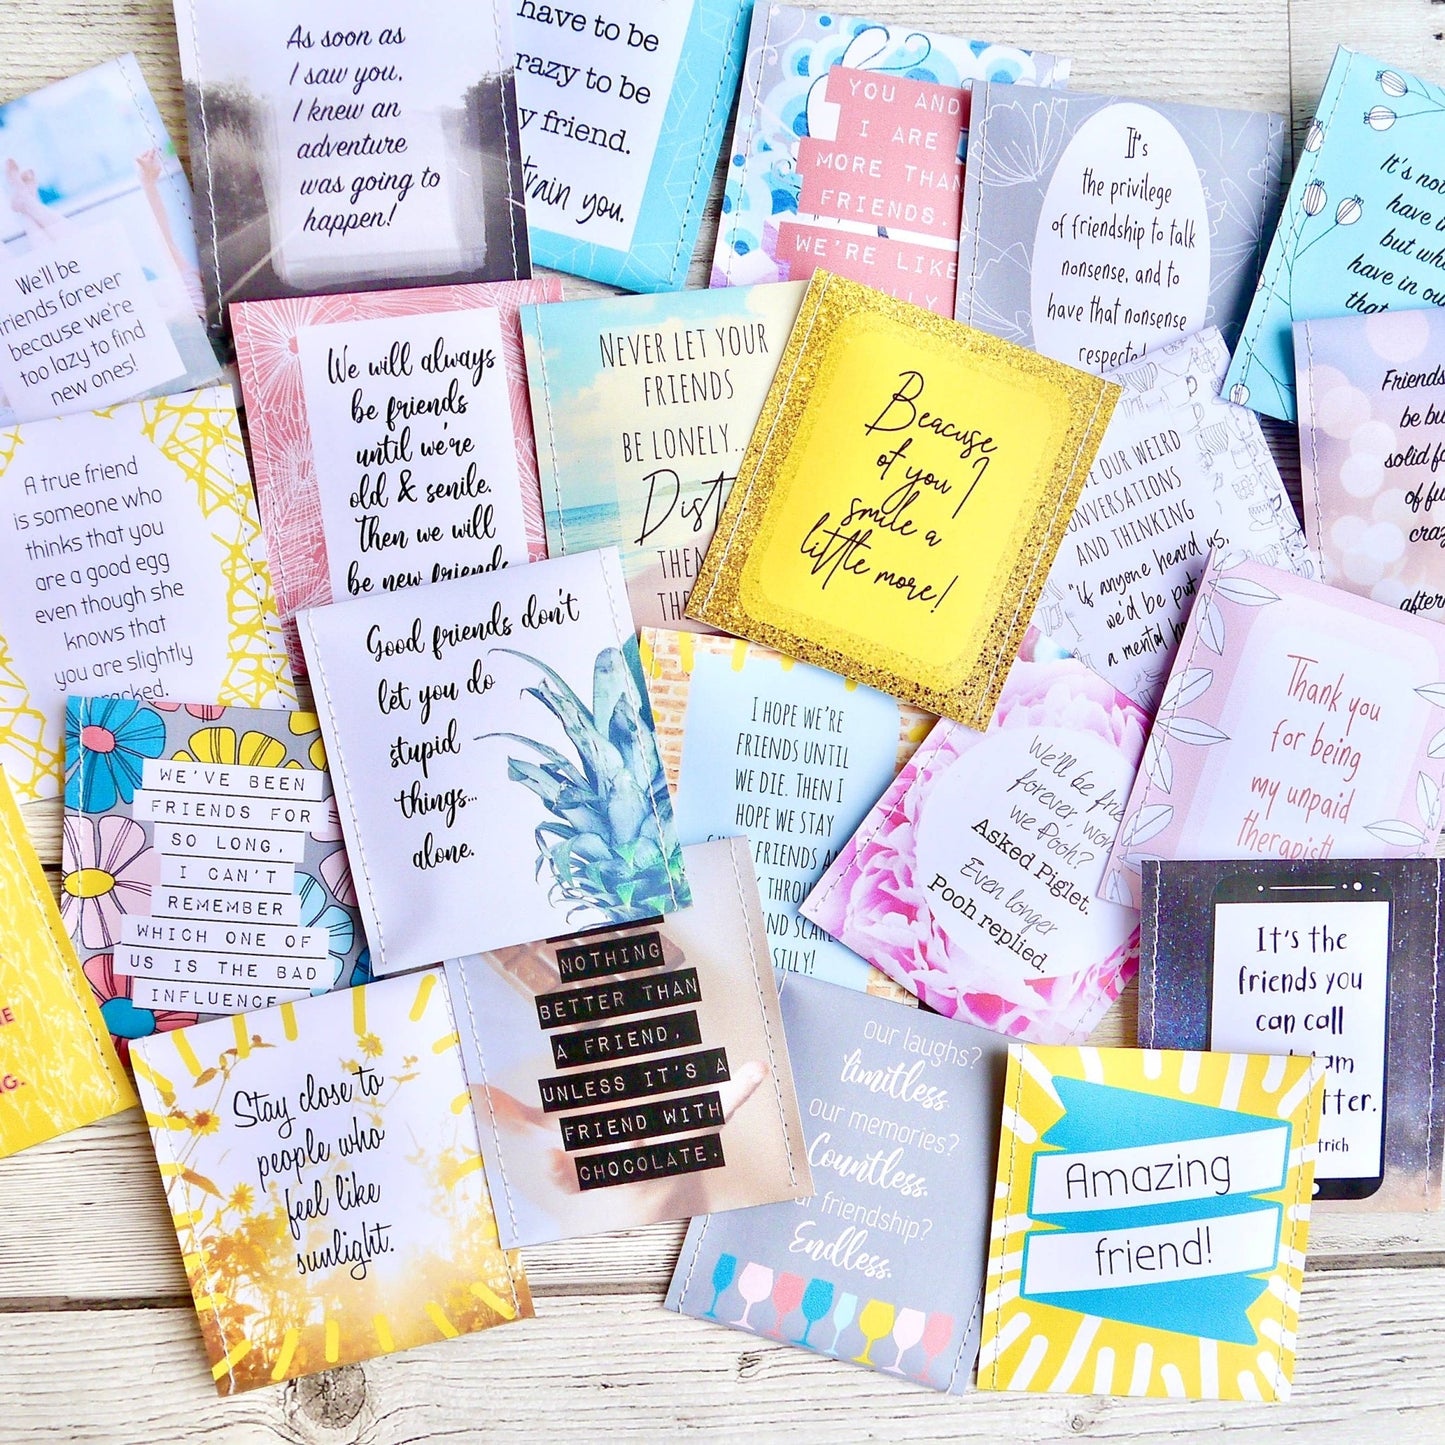 As soon as
I saw you,
I knew an
adventure
was going to
happen!
have to be
to be
friend.
train you.
YOU AND
I ARE
MORE THAN
FRIENDS.
WE'RE LIKE
It's
the privilege
of friendship to talk
nonsense, and to
have that nonsense
It's
have
but
have in
that
We'll be
friends forever
because we're
too lazy to find
new ones!
We will always
be friends
until we're
old & senile.
Then we will
be new friends
NEVER LET YOUR
FRIENDS
BE LONELY...
Beacuse
of you I
smile a
little more!
OUR WEIRD
AND THINKING
"if anyone heard us,
we'd be put
a mental
Friends
be
solid
of
A true friend
is someone who
thinks that you
are a good egg
even though she
knows that
you are slightly
cracked.
Good friends don't
let you do
stupid
things...
alone.
I HOPE WE'RE
FRIENDS UNTIL
WE DIE. THEN I
HOPE WE STAY
FRIENDS
SILLY!
We'll be
forever, won't
we Pooh?
Asked Piglet.
Even longer
Pooh replied.
Thank you
for being
my unpaid
therapist!
WE'VE BEEN
FRIENDS FOR
SO LONG,
I CAN'T
REMEMBER
WHICH ONE OF
US IS THE BAD
INFLUENCE
NOTHING
BETTER THAN
A FRIEND,
UNLESS IT'S A
FRIEND WITH
CHOCOLATE.
It's the
friends you
can call
Stay close to
people who
feel like
sunlight.
our laughs?
limitless.
our memories?
Countless.
friendship?
Endless.
Amazing
friend!